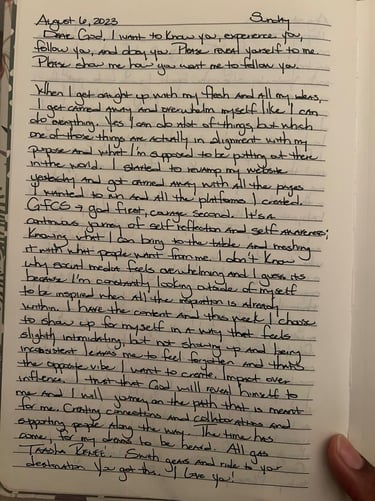 August 6, 2023 Sunday
Dear God, I want to know you, experience you,
follow you, and obey you. Please reveal yourself to me.
Please show me how you want me to follow you.
When I get caught up with my flesh and all my ideas,
I get carried away and overwhelm myself like I can
do everything. Yes I can do alot of things, but which
one of those things are actually in alignment with my
purpose and what I'm supposed to be putting out there
in the world. I started to revamp my website
yesterday and got carried away with all the pages
I wanted to and all the platforms I created.
GFCS → god first, courage second. It's a
continuous journey of self reflection and self awareness;
knowing what I can bring to the table and meshing
it with what people want from me. I don't know
why social media feels overwhelming and I guess its
because I'm constantly looking outside of myself
to be inspired when all the inspiration is already
within. I have the content and this week I choose
to show up for myself in a way that feels
slightly intimidating, but not showing up and being
inconsistent leaves me to feel forgotten and thats
the opposite vibe I want to create. Impact over
influence. I trust that God will reveal himself to
me and I will journey on the path that is meant
for me. Creating connections and collaborations and
supporting people along the way. The time has
come, for my to be heard. All gas
Renee. Switch gears and ride to your
destination. You got this. I love you!